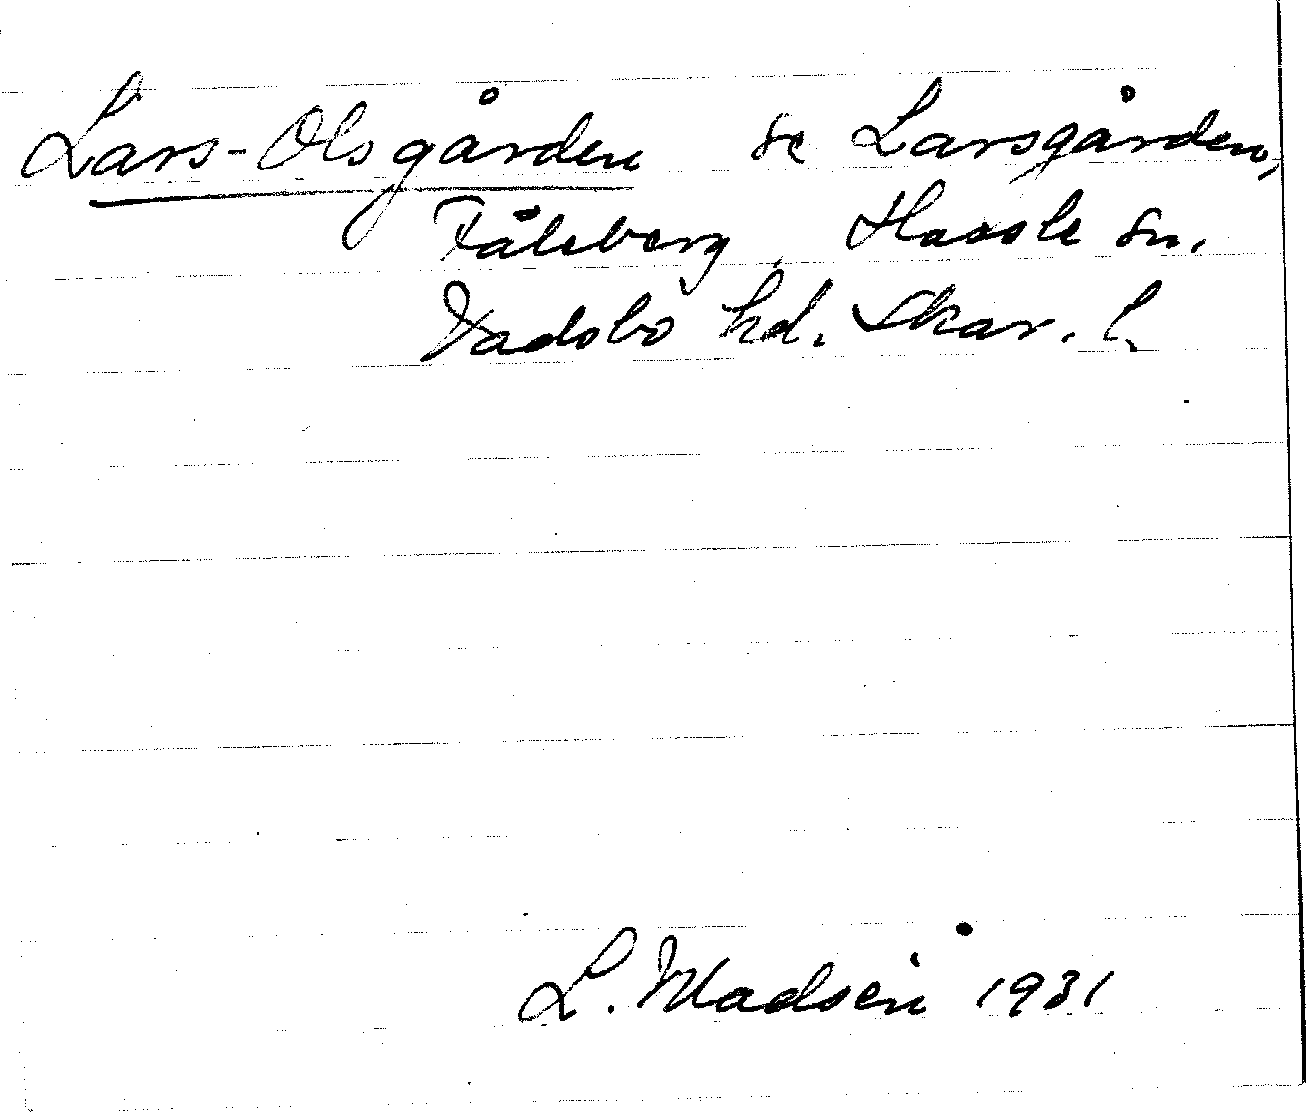 Lars-Olsgården se Larsgården,
Fåleberg, Hassle sn.
Vadsbo hd. Skar. l.
L. Madsén 1931